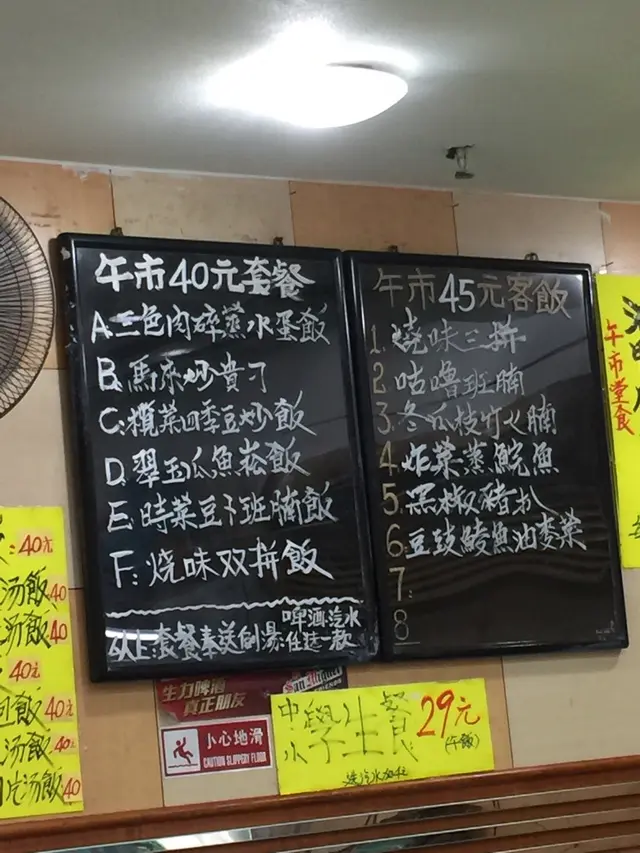 午市40元套餐
A.三色肉碎蒸水蛋飯
B.馬來炒貴刁
C:欖菜四季豆炒飯
D.翠玉瓜魚崧飯
E.時菜豆卜班腩飯
F:燒味双拼飯
啤酒,汽水
以上:套餐奉送例湯:任选一款
午市45元客飯
1.燒味三拼
2咕嚕班腩
3.冬瓜枝竹火腩
4炸菜蒸鯇魚
5.黑椒豬扒
6.豆豉鲮魚油麥菜
7:
8
午市堂食
:40元
汤飯40
汤飯40
40元
飯40元
汤飯40
片汤飯40
生力啤酒
真正朋友
San Miguel
小心地滑
CAUTION SLIPPERY FLOOR
中小學生餐29元
(午飯)